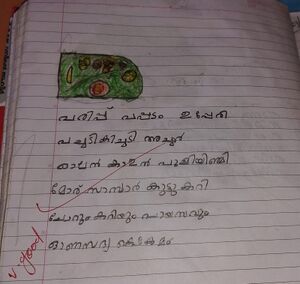 പരിപ്പ് പപ്പടം ഉപ്പേരി
പച്ചടികിച്ചടി അച്ചാർ
ഓലൻ കാളൻ പുളിയിഞ്ചി
മോര് സാമ്പാർ കൂട്ടുകറി
ചോറും കറിയും പായസവും
ഓണസദ്യ കെങ്കേമം
v. good